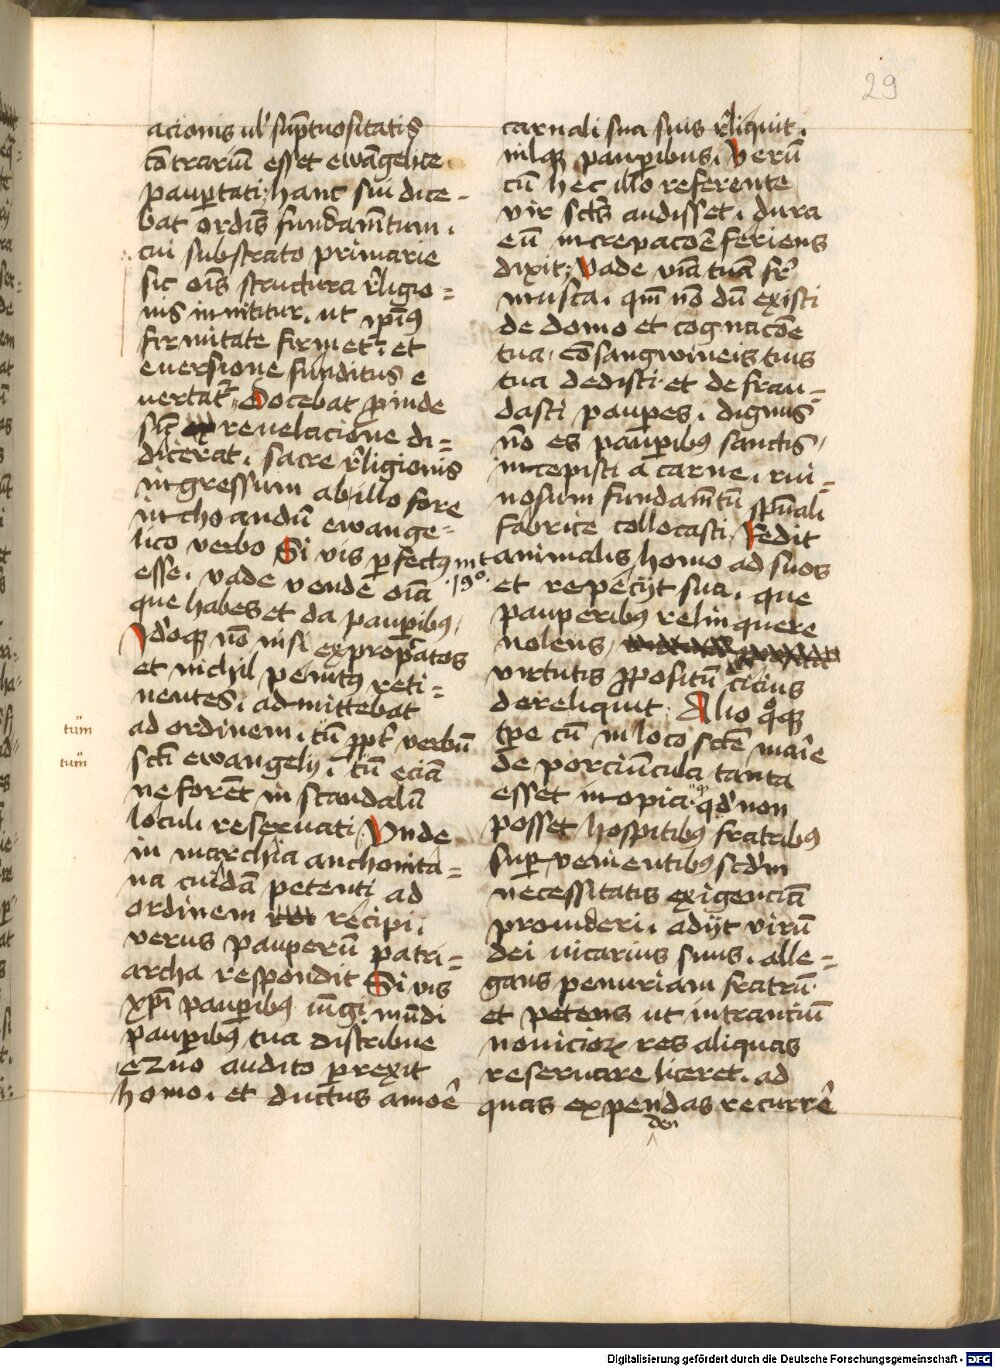 29
acionis ul' sūptuositatis
cōtrariū esset ewāgelice
paup̄tati, hanc sui dice-
bat ordīs fundam̄tum.
cui substrato primarie
sic oīs structura r̄ligio=
nis innititur, ut ip̄iꝰ
firmitate firmet᷑, et
euersione funditus e
uertat᷑. Docebat ꝓinde
sic̄ reuelacione di=
dicerat, sacre r̄ligionis
ingressum ab illo fore
inchoandū ewange=
lico verbo Si vis ꝑfectꝯ
esse, vade vende oīa
que habes et da paup̄ibꝯ,
Idoqꝫ nō nisi expropͥatos
et nichil penitꝯ reti=
nentes, admittebat
ad ordinem, tū ꝓpt̄ verbū
sctī ewangelij, tū eciā
ne forēt in scandalū
loculi reseruati Vnde
in marchia anchonita=
na cuidā petenti ad
ordinem recipi,
verus pauperū patri=
archa respondit Si vis
xp̄i paup̄ibꝯ iūgi mūdi
paup̄ibꝯ tua distribue
audito prexit
homo, et ductus amoē
tūm
tūm
mt
19°
carnali sua suis r̄liquit,
nilqꝫ paup̄ibus, Verū
cū hec illo referente
vir sctūs audisset, dura
eū increpacōe feriens
dixit, Vade viā tuā fr̄
musca, qm̄ nō dū existi
de domo et cognacōe
tua, cōsangwineis tuis
tua dedisti et defrau=
dasti paupes, dignus
nō es paup̄ibꝯ sanctis,
incepisti a carne, rui=
nosum fundam̄tū sp̄uali
fabrice collocasti, Redit
animalis homo ad suos
et repecijt sua, que
pauperibꝯ relinquere
nolens,
virtutis ꝓpositū cicius
dereliquit. Alio qͦqꝫ
tp̄e cū in loco scte marie
de porciūncula tanta
esset inopia qd' non
posset hospitibꝯ fratribꝯ
suꝑvenientibꝯ scd'm
necessitatis exigenciā
prouideri, adijt virū
dei uicarius suus, alle=
gans penuriam fratrū
et petens ut intranciū
nouicioꝝ res aliquas
reseruare liceret, ad
quas expendas recurrē
den
Digitalisierung gefördert durch die Deutsche Forschungsgemeinschaft - DFG